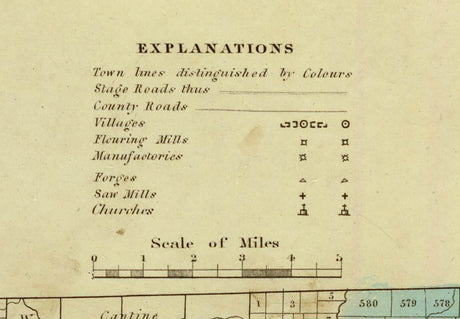 EXPLANATIONS
Town lines distinguished by Colours
Stage Roads thus
County Roads
Villages
Flouring Mills
Manufactories
Forges
Saw Mills
Churches
Scale of Miles
0 1 2 3 4 5
1 3 5 580 579 578
Cantine